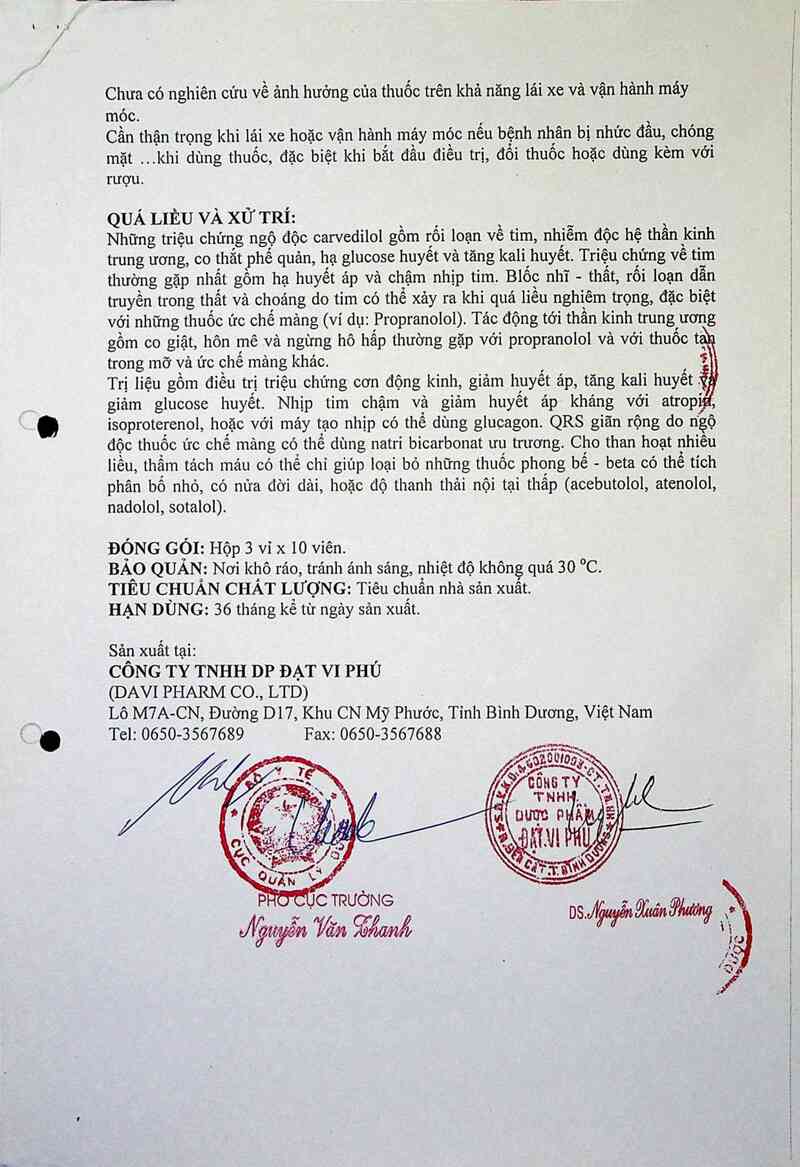 Chưa có nghiên cứu về ảnh hưởng của thuốc trên khả năng lái xe và vận hành máy
móc.
Cần thận trọng khi lái xe hoặc vận hành máy móc nếu bệnh nhân bị nhức đầu, chóng
mặt ...khi dùng thuốc, đặc biệt khi bắt đầu điều trị, đổi thuốc hoặc dùng kèm với
rượu.
QUÁ LIỀU VÀ XỬ TRÍ:
Những triệu chứng ngộ độc carvedilol gồm rối loạn về tim, nhiễm độc hệ thần kinh
trung ương, co thắt phế quản, hạ glucose huyết và tăng kali huyết. Triệu chứng về tim
thường gặp nhất gồm hạ huyết áp và chậm nhịp tim. Blốc nhĩ - thất, rối loạn dẫn
truyền trong thất và choáng do tim có thể xảy ra khi quá liều nghiêm trọng, đặc biệt
với những thuốc ức chế màng (ví dụ: Propranolol). Tác động tới thần kinh trung ương
gồm co giật, hôn mê và ngừng hô hấp thường gặp với propranolol và với thuốc tan
trong mỡ và ức chế màng khác.
Trị liệu gồm điều trị triệu chứng cơn động kinh, giảm huyết áp, tăng kali huyết và
giảm glucose huyết. Nhịp tim chậm và giảm huyết áp kháng với atropin,
isoproterenol, hoặc với máy tạo nhịp có thể dùng glucagon. QRS giãn rộng do ngộ
độc thuốc ức chế màng có thể dùng natri bicarbonat ưu trương. Cho than hoạt nhiều
liều, thẩm tách máu có thể chỉ giúp loại bỏ những thuốc phong bế - beta có thể tích
phân bố nhỏ, có nửa đời dài, hoặc độ thanh thải nội tại thấp (acebutolol, atenolol,
nadolol, sotalol).
ĐÓNG GÓI: Hộp 3 vỉ x 10 viên.
BẢO QUẢN: Nơi khô ráo, tránh ánh sáng, nhiệt độ không quá 30 °C.
TIÊU CHUẨN CHẤT LƯỢNG: Tiêu chuẩn nhà sản xuất.
HẠN DÙNG: 36 tháng kể từ ngày sản xuất.
Sản xuất tại:
CÔNG TY TNHH DP ĐẠT VI PHÚ
(DAVI PHARM CO., LTD)
Lô M7A-CN, Đường D17, Khu CN Mỹ Phước, Tỉnh Bình Dương, Việt Nam
Tel: 0650-3567689 Fax: 0650-3567688
BỘ Y TẾ
CỤC QUẢN LÝ
CÔNG TY
TNHH
DƯỢC PHẨM
ĐẠT VI PHÚ
BẾN CÁT.T.BÌNH DƯƠNG
PHÓ CỤC TRƯỞNG
Nguyễn Văn Thanh
DS.Nguyễn Xuân Phương
DƯỢC